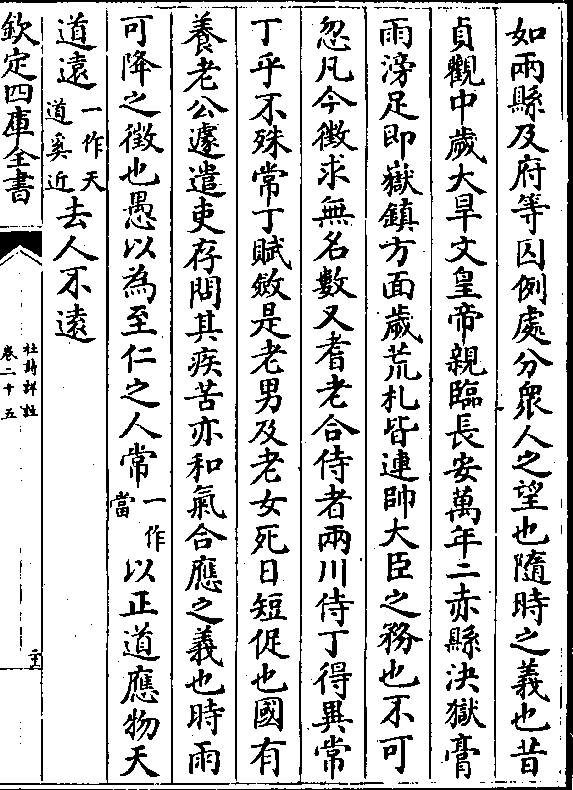 如兩縣及府等囚例處分衆人之望也隨時之義也昔
貞觀中歲大旱文皇帝親臨長安萬年二赤縣決獄膏
雨滂足即嶽鎮方面歲荒札皆連帥大臣之務也不可
忽凡今徵求無名數又耆老合侍者兩川侍丁得異常
丁乎不殊常丁賦斂是老男及老女死日短促也國有
養老公遽遣吏存問其疾苦亦和氣合應之義也時雨
可降之徵也愚以為至仁之人常一作當以正道應物天
道遠一作天道奚近去人不遠
欽定四庫全書
杜詩詳註
卷二十五